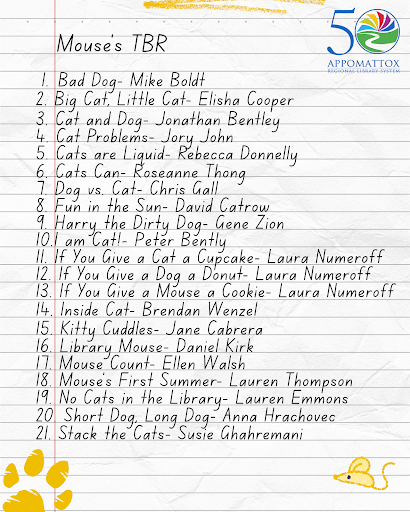 50
APPOMATTOX
REGIONAL LIBRARY SYSTEM
Mouse's TBR
1. Bad Dog- Mike Boldt
2. Big Cat, Little Cat- Elisha Cooper
3. Cat and Dog- Jonathan Bentley
4. Cat Problems- Jory John
5. Cats are Liquid- Rebecca Donnelly
6. Cats Can- Roseanne Thong
7. Dog vs. Cat- Chris Gall
8. Fun in the Sun- David Catrow
9. Harry the Dirty Dog- Gene Zion
10. I am Cat!- Peter Bently
11. If You Give a Cat a Cupcake- Laura Numeroff
12. If You Give a Dog a Donut- Laura Numeroff
13. If You Give a Mouse a Cookie- Laura Numeroff
14. Inside Cat- Brendan Wenzel
15. Kitty Cuddles- Jane Cabrera
16. Library Mouse- Daniel Kirk
17. Mouse Count- Ellen Walsh
18. Mouse's First Summer- Lauren Thompson
19. No Cats in the Library- Lauren Emmons
20. Short Dog, Long Dog- Anna Hrachovec
21. Stack the Cats- Susie Ghahremani